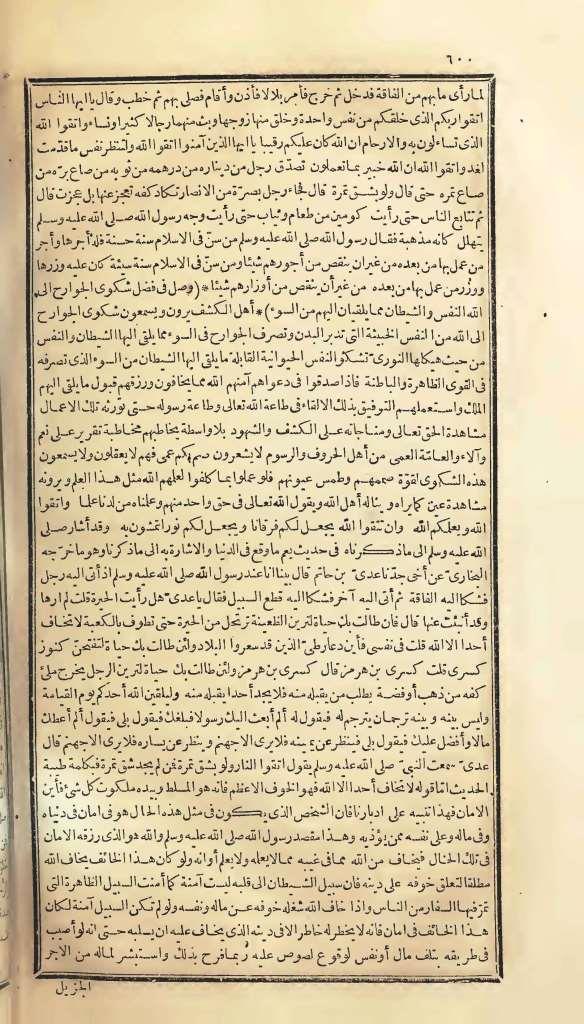 ٦٠٠
لما رأى ما بهم من الفاقة فدخل ثم خرج فأمر بلالا فأذن وأقام فصلى بهم ثم خطب وقال يا ايها الناس
اتقوا ربكم الذى خلقكم من نفس واحدة وخلق منها زوجها وبث منهما رجالا كثيرا ونساء واتقوا الله
الذى تساءلون به والارحام ان الله كان عليكم رقيبا يا ايها الذين آمنوا اتقوا الله ولتنظر نفس ما قدمت
لغد واتقوا الله ان الله خبير بما تعملون تصدق رجل من ديناره من درهمه من ثوبه من صاع بره من
صاع تمره حتى قال ولو بشق تمرة قال فجاء رجل بصرة من الانصار تكاد كفه تعجز عنها بل عجزت قال
ثم تتابع الناس حتى رأيت كومين من طعام وثياب حتى رأيت وجه رسول الله صلى الله عليه وسلم
يتهلل كأنه مذهبة فقال رسول الله صلى الله عليه وسلم من سنّ فى الاسلام سنة حسنة فله أجرها وأجر
من عمل بها من بعده من غير ان ينقص من أجورهم شيئا ومن سنّ فى الاسلام سنة سيئة كان عليه وزرها
ووزر من عمل بها من بعده من غير أن ينقص من أوزارهم شيئا *(وصل فى فضل شكوى الجوارح الى
الله النفس والشيطان مما يلقيان اليهم من السوء)* أهل الكشف يرون ويسمعون شكوى الجوارح
الى الله من النفس الخبيثة التى تدبر البدن وتصرف الجوارح فى السوء مما يلقى اليها الشيطان والنفس
من حيث هيكلها النورى تشكو النفس الحيوانية القابلة ما يلقى اليها الشيطان من السوء الذى تصرفه
فى القوى الظاهرة والباطنة فاذا صدقوا فى دعواهم آمنهم الله مما يخافون ورزقهم قبول ما يلقى اليهم
الملك واستعملهم التوفيق بذلك الالقاء فى طاعة الله تعالى وطاعة رسوله حتى تورثه تلك الاعمال
مشاهدة الحق تعالى ومناجاته على الكشف والشهود بلا واسطة يخاطبهم مخاطبة تقرير على نعم
وآلاء والعامّة العمى من أهل الحروف والرسوم لا يشعرون صم بكم عمى فهم لا يعقلون ولا يسمعون
هذه الشكوى لقوة صممهم وطمس عيونهم فلو عملوا بما كلفوا لعلمهم الله مثل هذا العلم ويرونه
مشاهدة عين كما يراه ويناله أهل الله ويقول الله تعالى فى حق واحد منهم وعلمناه من لدنا علما واتقوا
الله ويعلمكم الله وان تتقوا الله يجعل لكم فرقانا ويجعل لكم نورا تمشون به وقد أشار صلى
الله عليه وسلم الى ما ذكرناه فى حديث يعم ما وقع فى الدنيا والاشارة به الى ما ذكرنا وهو ما خرّجه
البخارى عن أخى جدّنا عدى بن حاتم قال بينا انا عند رسول الله صلى الله عليه وسلم اذ أتى اليه رجل
فشكا اليه الفاقة ثم أتى اليه آخر فشكا اليه قطع السبيل فقال يا عدى هل رأيت الحيرة قلت لم ارها
وقد أنبئت عنها قال فان طالت بك حياة لترين الظعينة ترتحل من الحيرة حتى تطوف بالكعبة لا تخاف
أحدا الا الله قلت فى نفسى فأين دعار طىّ الذين قد سعروا البلاد ولئن طالت بك حياة لتفتحنّ كنوز
كسرى قلت كسرى بن هرمز قال كسرى بن هرمز ولئن طالت بك حياة لترين الرجل يخرج ملئ
كفه من ذهب أو فضة يطلب من يقبله منه فلا يجد أحدا يقبله منه وليلقين الله أحدكم يوم القيامة
وليس بينه وبينه ترجمان يترجم له فيقول له ألم أبعث اليك رسولا فيبلغك فيقول بلى فيقول ألم أعطك
مالا وأفضل عليك فيقول بلى فينظر عن يمينه فلا يرى الا جهنم وينظر عن يساره فلا يرى الا جهنم قال
عدى سمعت النبىّ صلى الله عليه وسلم يقول اتقوا النار ولو بشق تمرة فمن لم يجد شق تمرة فبكلمة طيبة
الحديث اما قوله لا تخاف أحدا الا الله فهو الخوف الاعظم فانه هو المسلط وبيده ملكوت كل شئ فأين
الامان فهذا تنبيه على ادبارنا فان الشخص الذى يكون فى مثل هذه الحال هو فى امان فى دنياه
وفى ماله وعلى نفسه ممن يؤذيه وهذا مقصد رسول الله صلى الله عليه وسلم والله هو الذى رزقه الامان
فى تلك الحال فيخاف من الله مما فى غيبه مما لا يعلمه ولا يعلم أوانه ولو كان هذا الخائف يخاف الله
مطلقا لتعلق خوفه على دينه فان سبيل الشيطان الى قلبه ليست آمنة كما أمنت السبيل الظاهرة التى
تمرّ فيها السفار من الناس واذا خاف الله شغله خوفه عن ماله ونفسه ولو لم تكن السبيل آمنة لكان
هذا الخائف فى امان فانه لا يخطر له خاطر الا فى دينه الذى يخاف عليه ان يسلبه حتى انه لو أصيب
فى طريقه بتلف مال أو نفس لوقوع لصوص عليه ربما فرح بذلك واستبشر لماله من الاجر
الجزيل